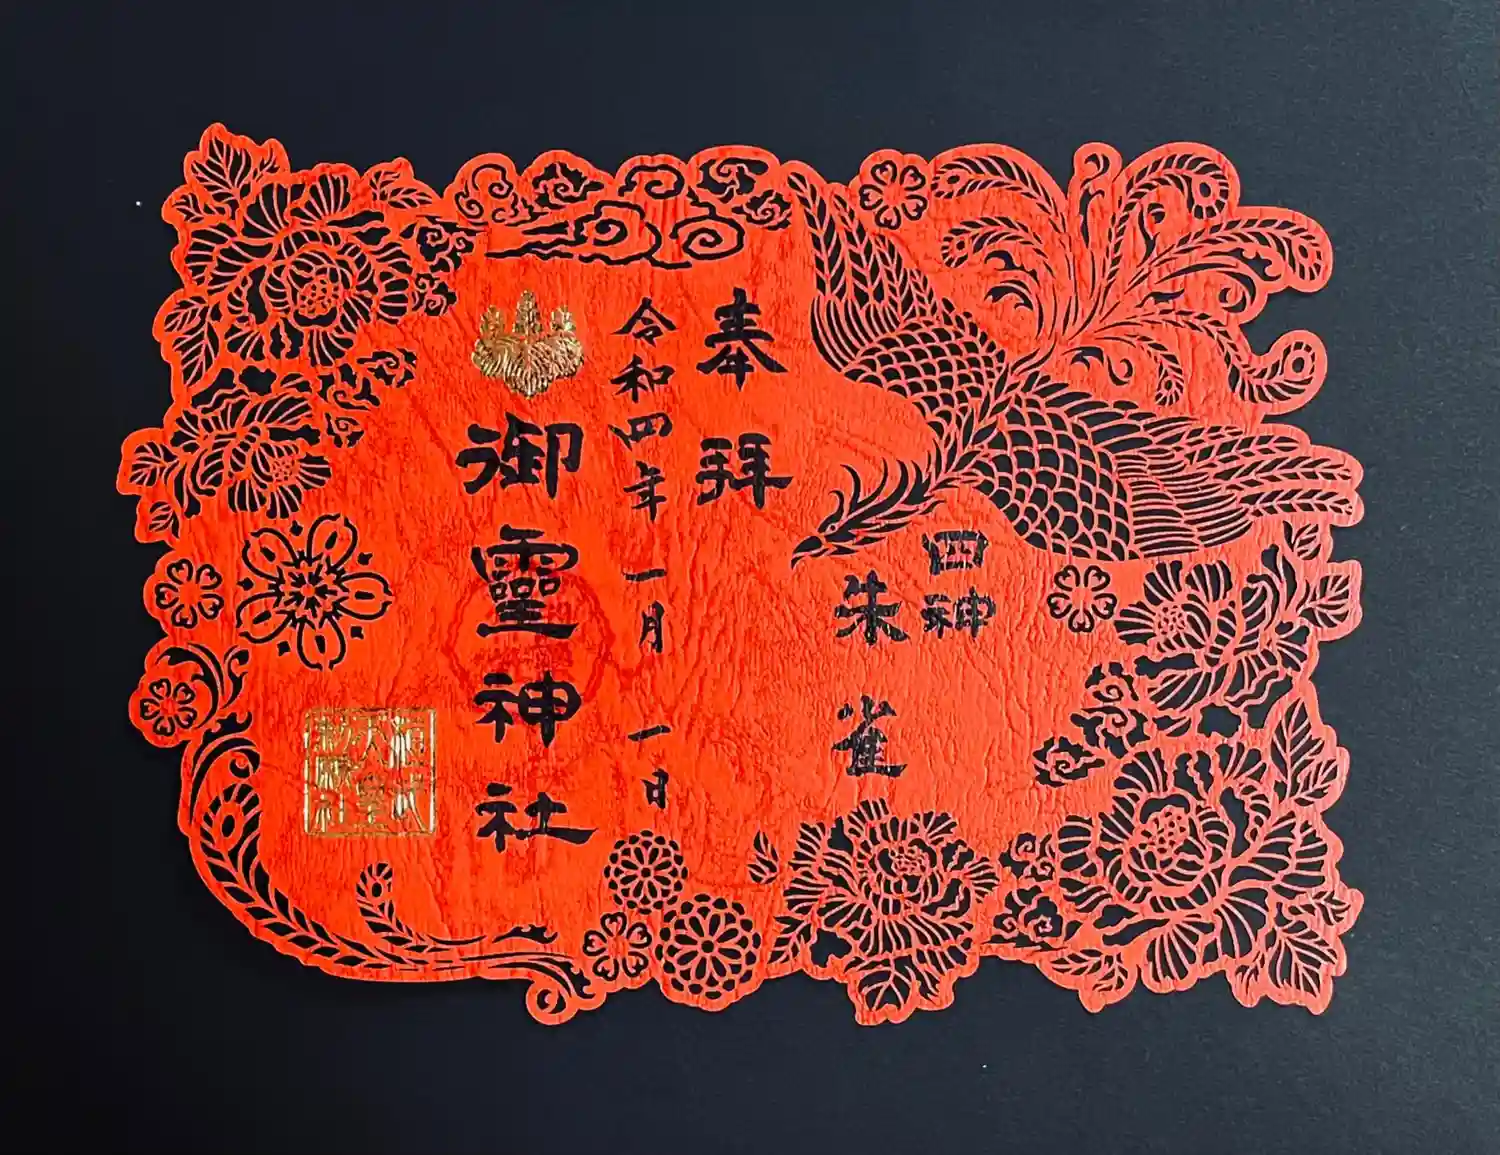 四神
朱雀
奉拝
令和四年一月一日
御靈神社
桓武
天皇
勅願社